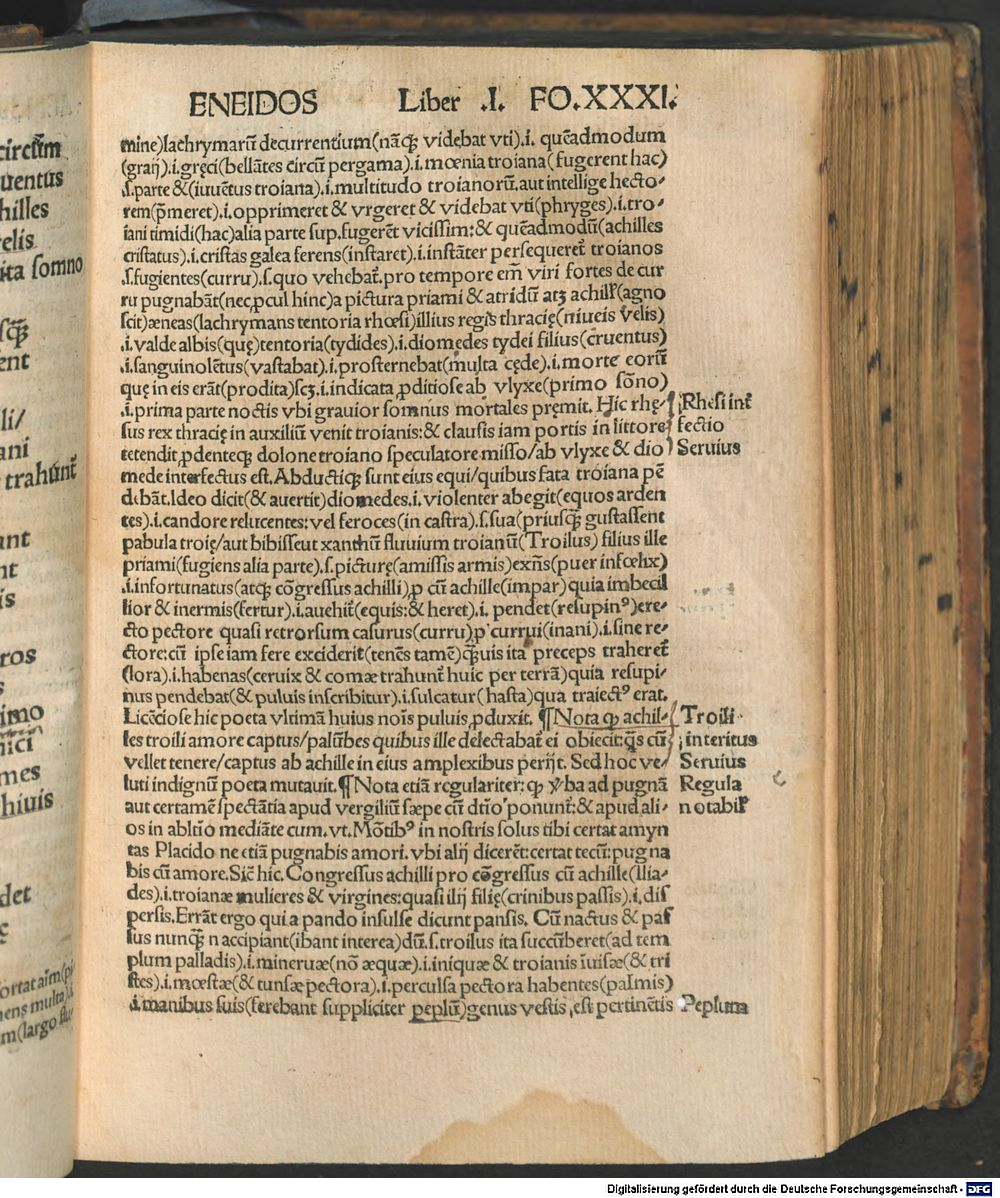 ENEIDOS Liber .I. FO.XXXI.
mine)lachrymarū decurrentium(nāq; videbat vti).i. quēadmodum
(graij).i.gręci(bellātes circū pergama).i.mœnia troiana(fugerent hac)
.s.parte &(iuuētus troiana).i.multitudo troianorū.aut intellige hecto-
rem(p̄meret).i.opprimeret & vrgeret & videbat vti(phryges).i.tro-
iani timidi(hac)alia parte sup.fugerēt vicissim:& quēadmodū(achilles
cristatus).i.cristas galea ferens(instaret).i.instāter persequeret̄ troianos
.s.fugientes(curru).s.quo vehebat̄.pro tempore em̄ viri fortes de cur
ru pugnabāt(nec,pcul hinc)a pictura priami & atridū atqȝ achill'(agno
scit)æneas(lachrymans tentoria rhœsi)illius regis thracię(niueis velis)
.i.valde albis(quę)tentoria(tydides).i.diomedes tydei filius(cruentus)
.i.sanguinolētus(vastabat).i.prosternebat(multa cęde).i.morte eorū
que in eis erāt(prodita)scȝ.i.indicata ,pditiose ab vlyxe(primo sōno)
.i.prima parte noctis vbi grauior somnus mortales pręmit. Hic rhę-
sus rex thracię in auxiliū venit troianis:& clausis iam portis in littore
tetendit,pdenteq; dolone troiano speculatore misso/ab vlyxe & dio
mede interfectus est.Abductiq; sunt eius equi/quibus fata troiana pē
debāt.Ideo dicit(& auertit)diomedes.i.violenter abegit(equos arden
tes).i.candore relucentes:vel feroces(in castra).s.sua(priusq̄ȝ gustassent
pabula troię/aut bibisseut xanthū fluuium troianū(Troilus) filius ille
priami(fugiens alia parte).s.picturę(amissis armis)exn̄s(puer infœlix)
.i.infortunatus(atq; cōgressus achilli),p cū achille(impar)quia imbecil
lior & inermis(fertur).i.auehit̄(equis:& heret).i. pendet(resupin⁹)ere-
cto pectore quasi retrorsum casurus(curru),p currui(inani).i.sine re-
ctore:cū ipse iam fere exciderit(tenēs tamē)q̄ȝuis ita preceps traheret̄
(lora).i.habenas(ceruix & comæ trahunt̄ huic per terrā)quia resupi-
nus pendebat(& puluis inscribitur).i.sulcatur(hasta)qua traiect⁹ erat.
Licēciose hic poeta vltimā huius nois puluis,pduxit. ¶Nota qp achil-
les troili amore captus/palūbes quibus ille delectabat̄ ei obiecit:q̄s cū
vellet tenere/captus ab achille in eius amplexibus perijt. Sed hoc ve-
luti indignū poeta mutauit.¶Nota etiā regulariter: qp v̄ba ad pugnā
aut certamē spectātia apud vergiliū sæpe cū dtio ponunt̄:& apud ali-
os in abltio mediāte cum.vt.Mōtib⁹ in nostris solus tibi certat amyn
tas Placido ne etiā pugnabis amori.vbi alij dicerēt:certat tecū:pugna
bis cū amore.Sic̄ hic. Congressus achilli pro cōgressus cū achille(Ilia-
des).i.troianæ mulieres & virgines:quasi ilij filię(crinibus passis).i.dis
persis.Errāt ergo qui a pando insulse dicunt pansis. Cū nactus & pas
sus nunq̄ȝ n accipiant(ibant interea)dū.s.troilus ita succūberet(ad tem
plum palladis).i.mineruæ(nō æquæ).i.iniquæ & troianis īuisæ(& tri
stes).i.mœstæ(& tunsæ pectora).i.perculsa pectora habentes(palmis)
.i.manibus suis(ferebant suppliciter peplū)genus vestis,est pertinētis
Rhesi int̄
fectio
Seruius
Troili
interitus
Seruius
Regula
notabil'
Peplum
circūm
uentus
hilles
relis
ita somno
sq̄ȝ
ent
li/
ani
trahūnt̄
ant
nt
is
ros
s
imo
nici
mes
hiuis
det
Digitalisierung gefördert durch die Deutsche Forschungsgemeinschaft - DFG